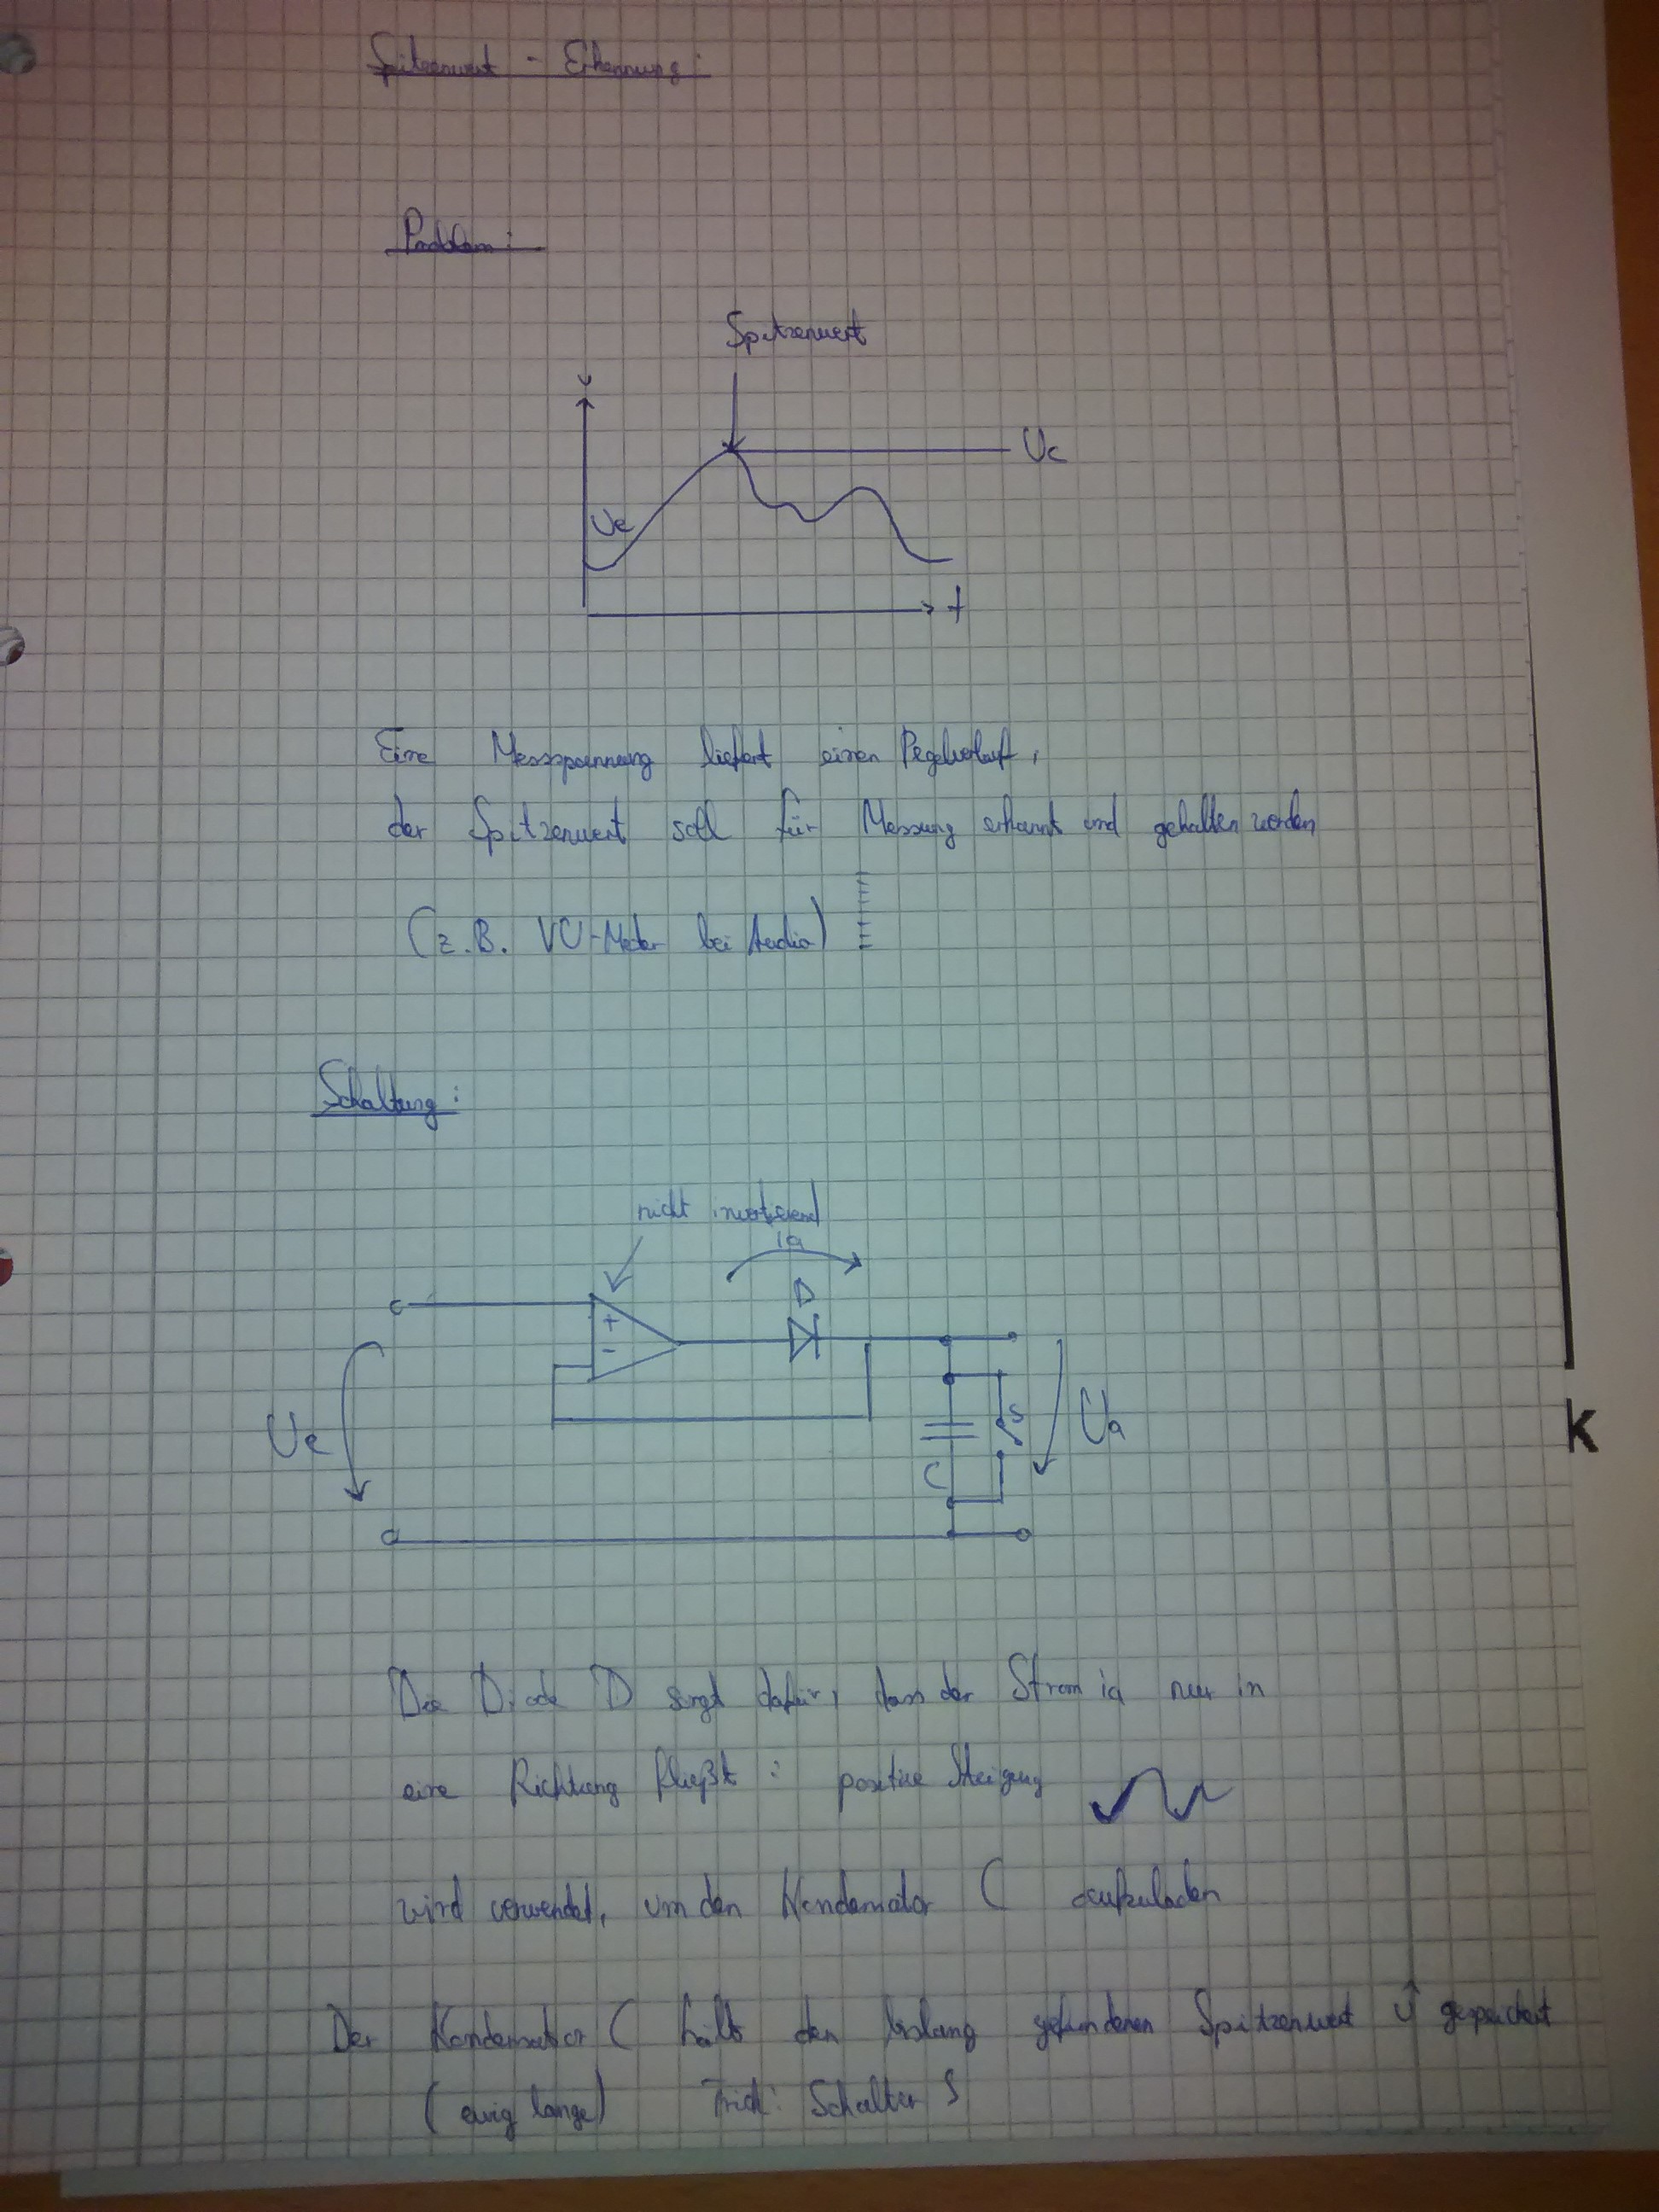 Spitzenwert - Erkennung:
Problem:
Spitzenwert
U
Uc
Ue
t
Eine Messspannung liefert einen Pegelverlauf,
der Spitzenwert soll für Messung erkannt und gehalten werden
(z.B. VU-Meter bei Audio)
Schaltung:
nicht invertierend
ia
D
+
-
Ue
S
Ua
C
k
Die Diode D sorgt dafür, dass der Strom ia nur in
eine Richtung fließt: positive Steigung
wird verwendet, um den Kondensator C aufzuladen
Der Kondensator C hält den bislang gefundenen Spitzenwert Û gespeichert
(ewig lange) Trick: Schalter S